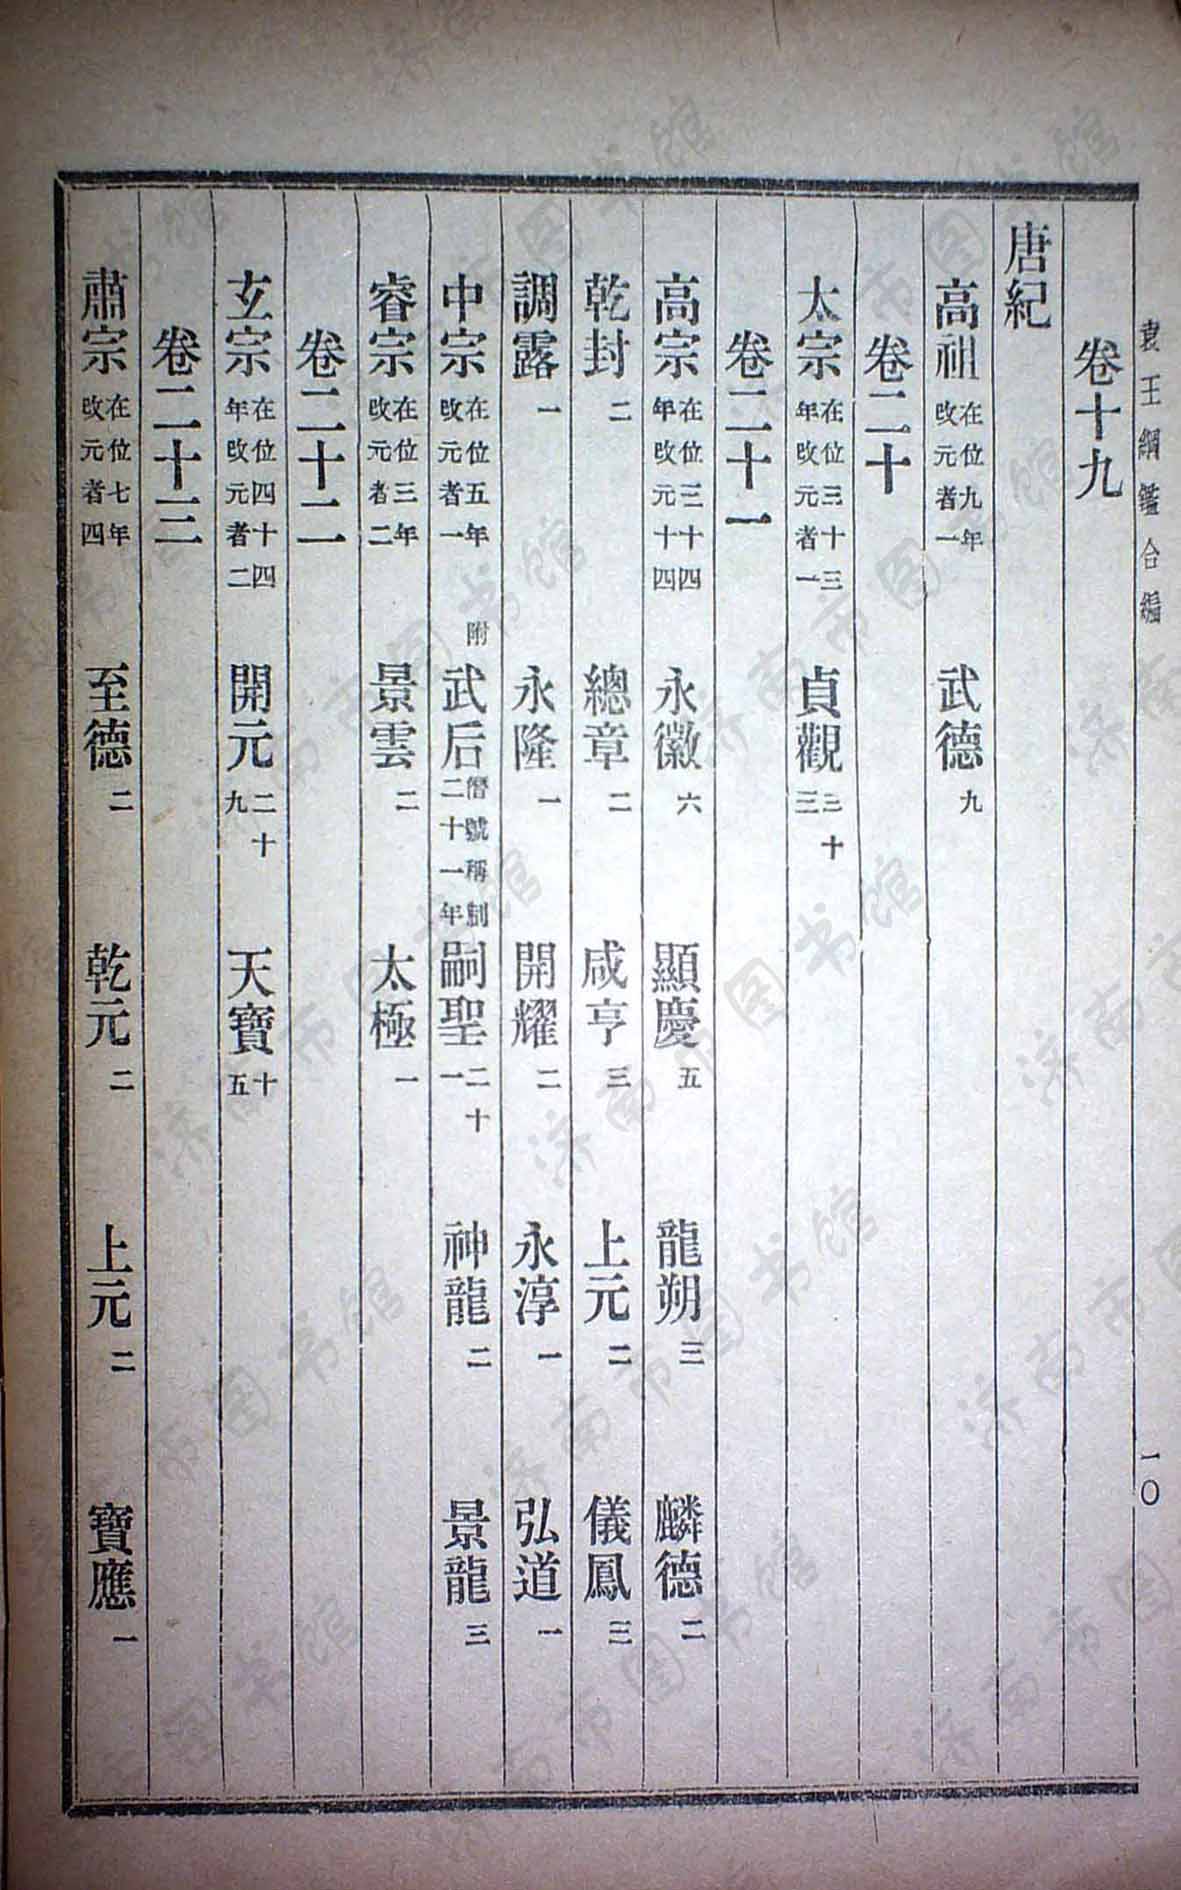 袁王綱鑑合編
一〇
卷十九
唐紀
高祖 在位九年改元者一 武德 九
卷二十
太宗 在位二十三年改元者一 貞觀 二十三
卷二十一
高宗 在位三十四年改元十四 永徽 六 顯慶 五 龍朔 三 麟德 二
乾封 二 總章 二 咸亨 三 上元 二 儀鳳 三
調露 一 永隆 一 開耀 二 永淳 一 弘道 一
中宗 在位五年改元者一 附武后 僭號稱制二十一年 嗣聖 二十一 神龍 二 景龍 三
睿宗 在位三年改元者二 景雲 二 太極 一
卷二十二
玄宗 在位四十四年改元者二 開元 二十九 天寶 十五
卷二十三
肅宗 在位七年改元者四 至德 二 乾元 二 上元 二 寶應 一
济南市图书馆